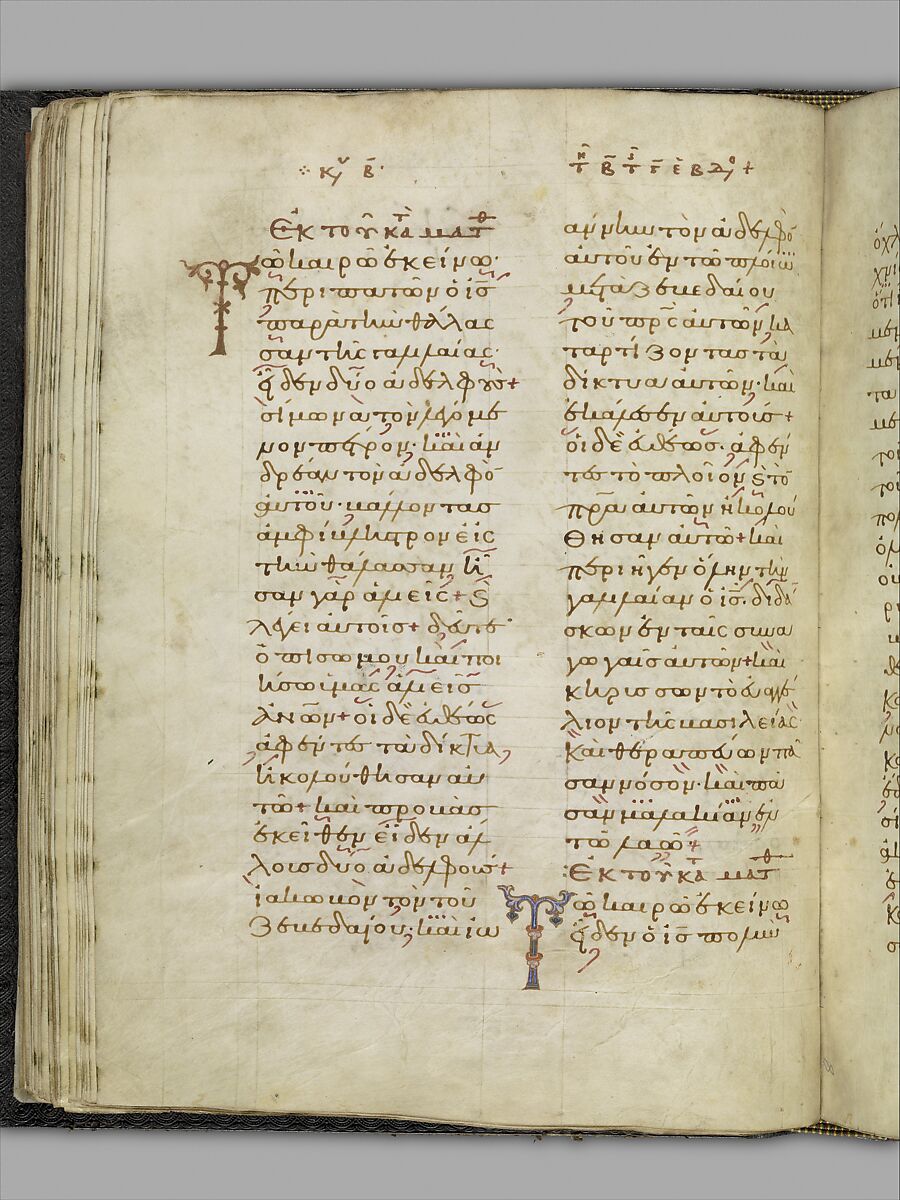 κυ β
ἐκ τοῦ κατὰ ματθ
τῶ καιρῶ ἐκείνω·
περιπατῶν ὁ ις
παρὰ τὴν θάλας
σαν τῆς γαλιλαίας·
εἶδεν δύο ἀδελφοὺς+
σίμωνα τὸν λεγόμε
νον πέτρον, καὶ ἀν
δρέαν τὸν ἀδελφὸ
αὐτοῦ· βάλλοντας
ἀμφίβληστρον εἰς
τὴν θάλασσαν ἦ
σαν γὰρ ἁλιεῖς+ καὶ
λέγει αὐτοῖς+ δεῦτε
ὀπίσω μου καὶ ποι
ήσω ὑμᾶς ἁλιεῖς
ανων+ οἱ δὲ εὐθέως
ἀφέντες τὰ δίκτυα,
ἠκολούθησαν αὐ
τῶ+ καὶ προβὰς
ἐκεῖθεν εἶδεν ἄλ
λους δύο ἀδελφοὺς+
ἰάκωβον τὸν τοῦ
ζεβεδαίου, καὶ ἰω
άννην τὸν ἀδελφὸ
αὐτοῦ ἐν τῶ πλοίω
μετὰ ζεβεδαίου
τοῦ πρς αὐτῶν κα
ταρτίζοντας τὰ
δίκτυα αὐτῶν· καὶ
ἐκάλεσεν αὐτούς+
οἱ δὲ εὐθέως· ἀφέν
τες τὸ πλοῖον καὶ τὸ
πρα αὐτῶν ἠκολού
θησαν αὐτῶ+ καὶ
περιῆγεν ὅλην τὴν
γαλιλαίαν ὁ ις. διδά
σκων ἐν ταῖς συνα
γωγαῖς αὐτῶν+ καὶ
κηρύσσων τὸ εὐαγγέ
λιον τῆς βασιλείας
καὶ θεραπεύων πᾶ
σαν νόσον· καὶ πᾶ
σαν μαλακίαν ἐν
τῶ λαῶ+
ἐκ τοῦ κατὰ ματθ
τῶ καιρῶ ἐκείνω
εἶδεν ὁ ις πολὺν